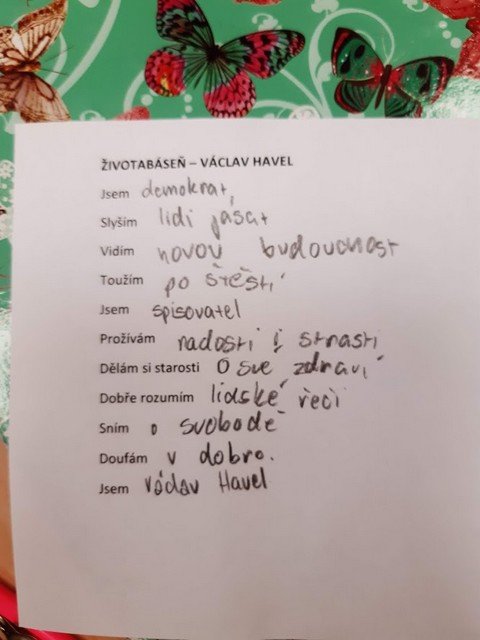 ŽIVOTABÁSEŇ – VÁCLAV HAVEL
Jsem demokrat,
Slyším lidi jásat
Vidím novou budoucnost
Toužím po štěstí
Jsem spisovatel
Prožívám radosti i strasti
Dělám si starosti o své zdraví
Dobře rozumím lidské řeči
Sním o svobodě
Doufám v dobro.
Jsem Václav Havel